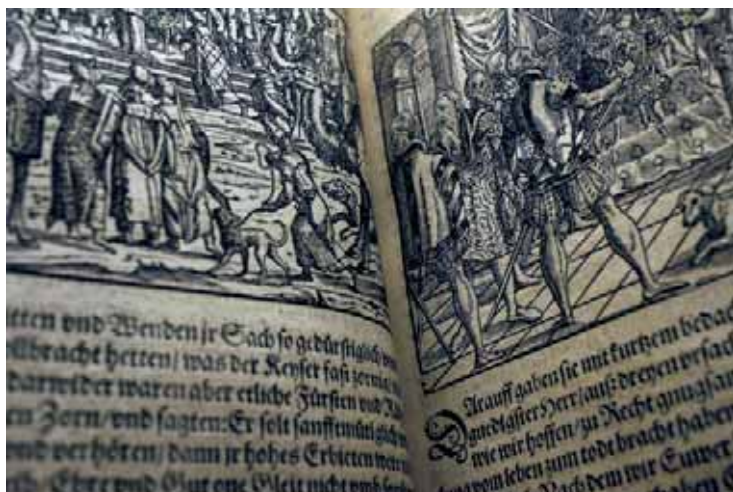 tten vnd Wenden jr Sach so gedürstiglich
llbracht hetten/ was der Keyser fast zornig
darwider waren aber etliche Fürsten vnd
en Zorn/vnd sagten: Er solt sanfftmütiglich
vnd verhören/ dann jr hohes Erbieten
Ehre vnd Gut one Gleit nicht
Arauff gaben sie mit kurtzem bedac
gnedigster Herr/ auß dreyen vrsach
wie wir hoffen/ zu Recht gnugsam
vom leben zum todt bracht haben
Nach dem wir Suwer